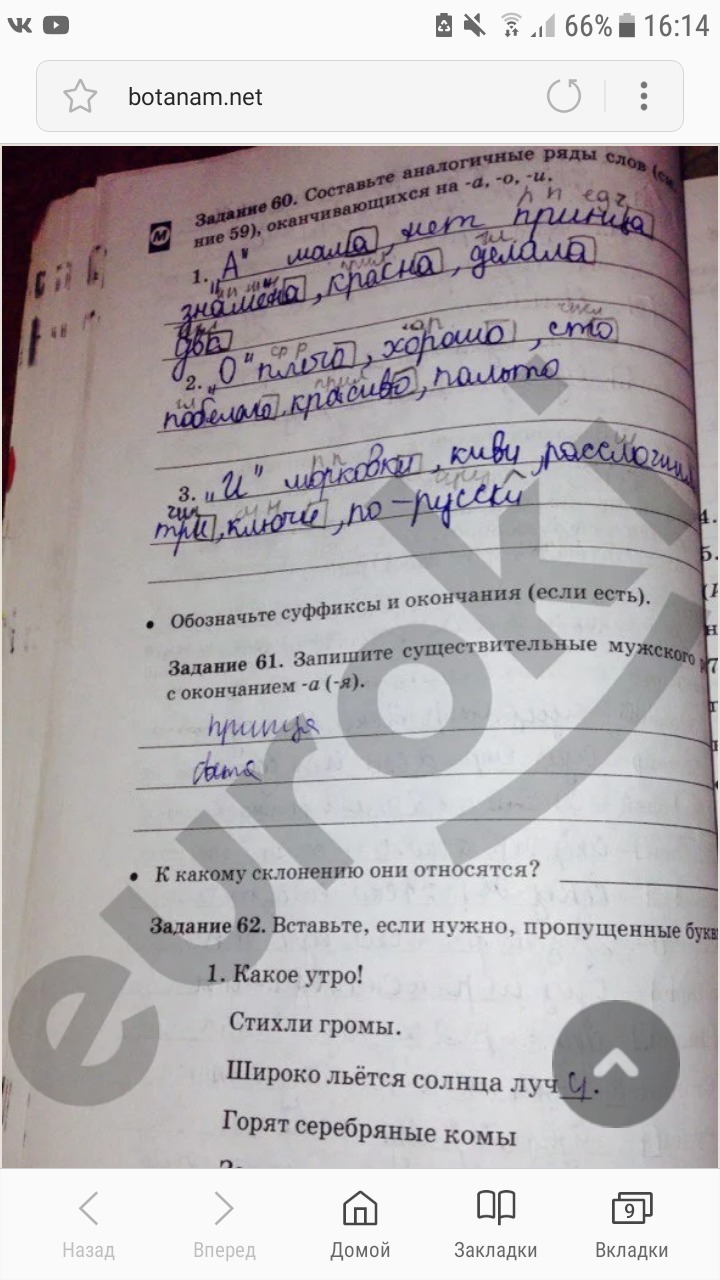 66% 16:14
botanam.net
Задание 60. Составьте аналогичные ряды слов (см.
ние 59), оканчивающихся на -а, -о, -и.
1. "А" мама, нет принца
знамёна, красна, делала
два
2. "О" плечо, хорошо, сто
побелело, красиво, пальто
3. "И" морковки, киви,
три, ключи, по-русски
• Обозначьте суффиксы и окончания (если есть).
Задание 61. Запишите существительные мужского
с окончанием -а (-я).
• К какому склонению они относятся?
Задание 62. Вставьте, если нужно, пропущенные букв
1. Какое утро!
Стихли громы.
Широко льётся солнца луч_.
Горят серебряные комы
euroki
4.
5.
Назад Вперед Домой Закладки 9 Вкладки